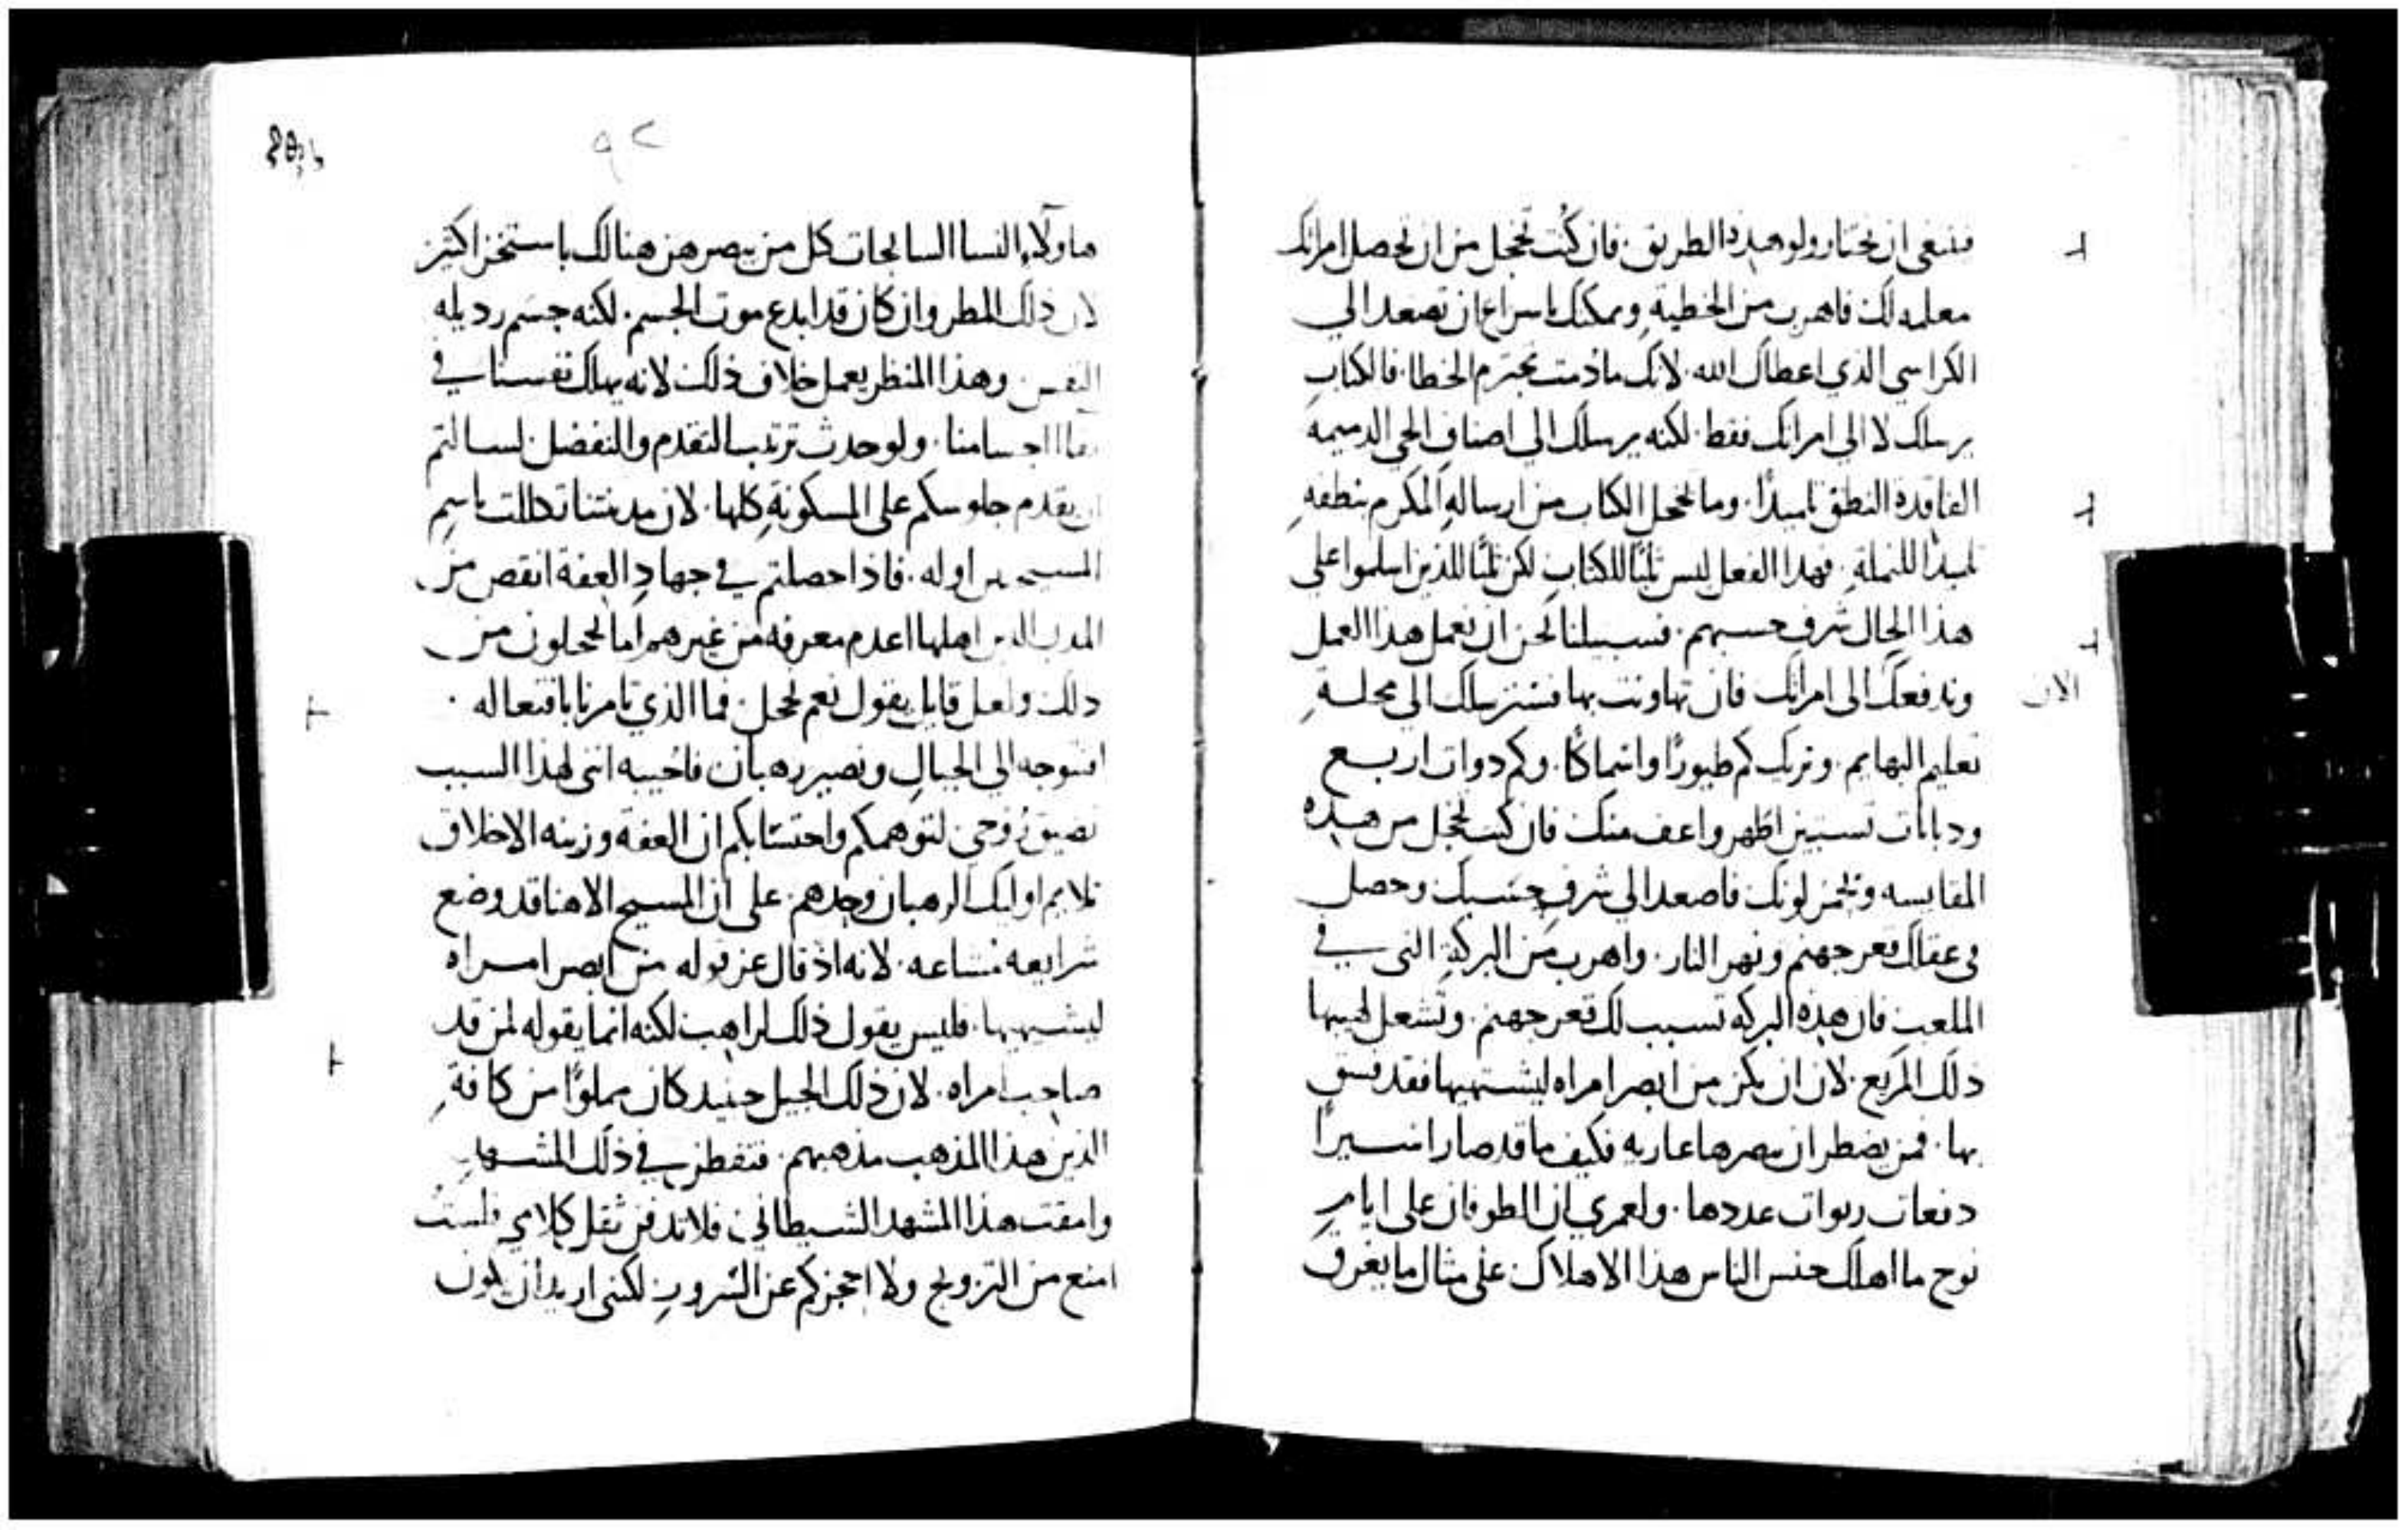 فينبغي ان تختار ولو هذه الطريق. فان كنت تخجل من ان تحصل امراتك
معلمه لك فاهرب من الخطية وىمكنك باسراع ان تصعد الي
الكراسي الذي اعطاك الله. لانك ما دمت تجترم الخطا. فالكتاب
يرسلك لا الي امراتك فقط. لكنه يرسلك الي اصناف الحي الدميمه
الفاقدة النطق تلميدًا. وما يخجل الكتاب من ارساله المكرم بنطقه
تلميدا للنملة. فهدا الفعل ليس ثلبًا للكتاب لكن ثلبًا للذين اسلموا على
هذا الحال شرف جنسهم. فسبيلنا نحن ان نعمل هدا العمل
الان
وندفعك الى امراتك فان تهاونت بها فسنرسلك الى محلة
تعليم البهايم. ونريك كم طيورًا واسماكًا. وكم دوات اربع
ودبابات تستبين اطهر واعف منك فان كنت تخجل من هذه
المقايسه وتخمر لونك فاصعد الي شرف جنسك وحصل
في عقلك قعر جهنم ونهر النار. واهرب من البركة التي في
الملعب فان هذه البركه تسبب لك قعر جهنم. وتشعل لهيبها
ذلك المريع. لان ان يكن من ابصر امراه ليشتهيها فقد فسق
بها. فمن يضطر ان يبصرها عاريه فكيف ما قد صار اسيرًا
دفعات ربوات عددها. ولعمري ان الطوفان على ايام
نوح ما اهلك جنس الناس هذا الاهلاك على مثال ما يغرق
٩٢
هاولاء النسا السابحات كل من يبصرهن هنالك باستخزا كثير
لان ذلك المطر وان كان قد ابدع موت الجسم. لكنه حسم رديله
النفس. وهذا المنظر يعمل خلاف ذلك لانه يهلك نفسنا في
بقا اجسامنا. ولو حدث ترتيب التقدم والتفضل لسالتم
ان يقدم جلوسكم على المسكونة كلها. لان مدينتنا تكللت باسم
المسيحيين اوله. فاذا حصلتم في جهاد العفة انقص من
المدن الذين اهلها اعدم معرفه من غيرهم اما تخجلون من
ذلك ولعل قايل يقول نعم نخجل. فما الذي تامرنا بافتعاله.
افنتوجه الي الجبال ونصير رهبان فاجيبه انني لهذا السبب
تضيق روحي لتوهمكم واحتسابكم ان العفة وزينه الاخلاق
تلايم اوليك الرهبان وحدهم. على ان المسيح الاهنا قد وضع
شرايعه مشاعه. لانه اذ قال عن قوله من ابصر امراه
ليشتهيها. فليس يقول ذلك لراهب لكنه انما يقوله لمن قد
صاحب امراه. لان ذلك الجبل حينيد كان مملوًا من كافة
الذين هذا المذهب مذهبهم. فتفطن في ذلك المشهد
وامقت هذا المشهد الشيطاني. فلا تدفن ثقل كلامي فلست
امنع من التزويج ولا احجزكم عن السرور لكنني اريد ان يكون